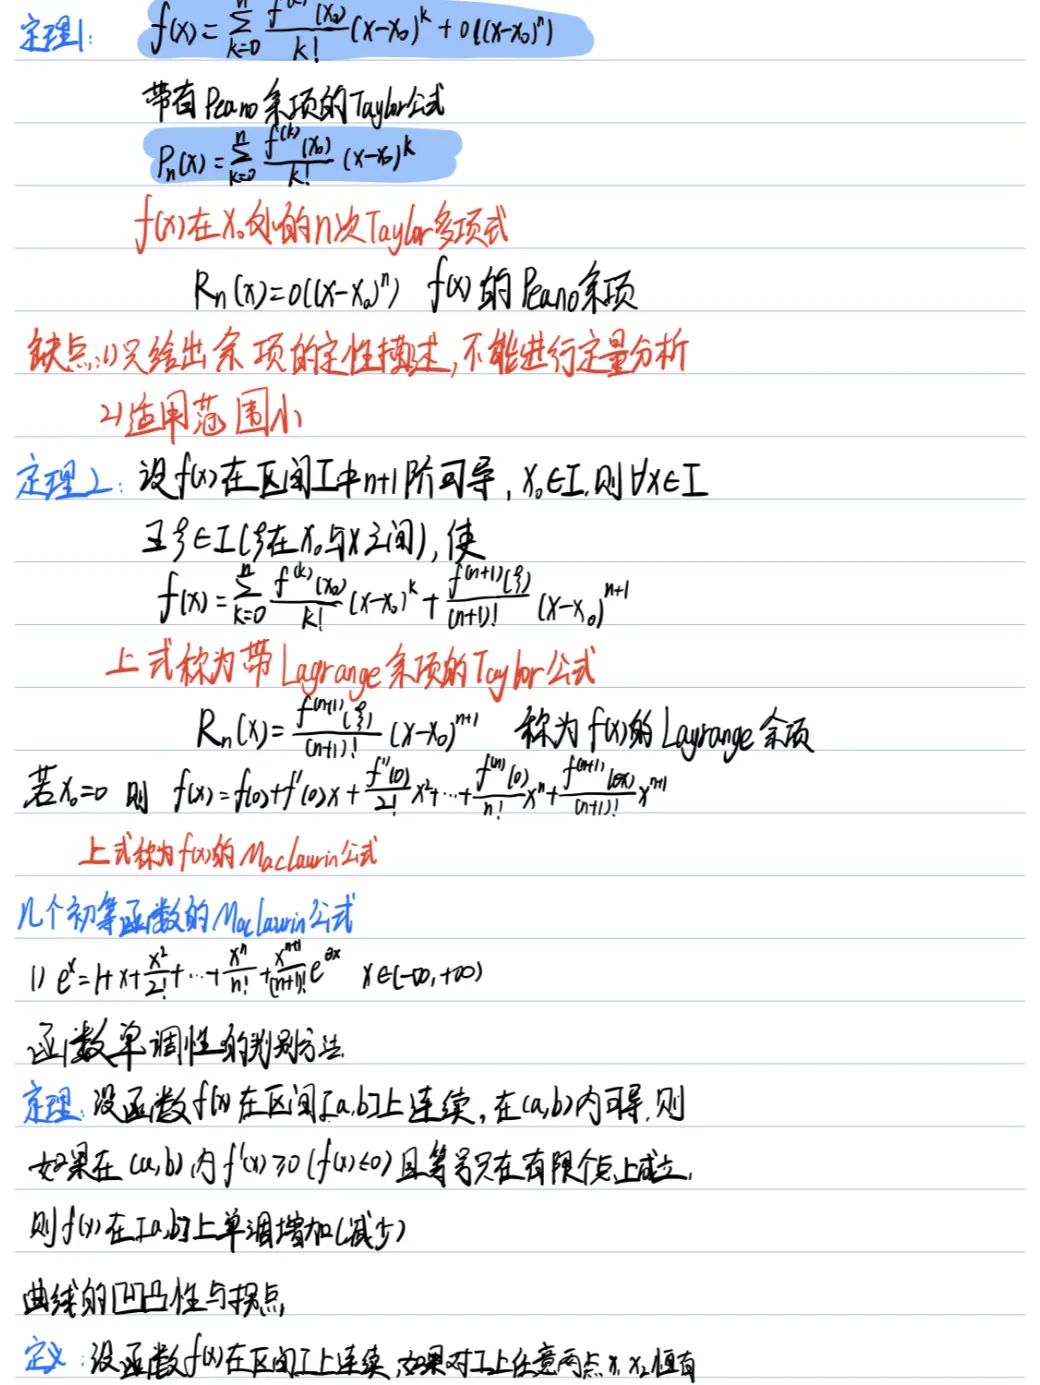 定理1: f(x)=∑_{k=0}^{n} f^{(k)}(x₀)/k! (x-x₀)^k+o((x-x₀)^n)
带有Peano余项的Taylor公式
P_n(x)=∑_{k=0}^{n} f^{(k)}(x₀)/k! (x-x₀)^k
f(x)在x₀处的n次Taylor多项式
R_n(x)=o((x-x₀)^n) f(x)的Peano余项
缺点:1)只给出余项的定性描述,不能进行定量分析
2)适用范围小
定理2: 设f(x)在区间I中n+1阶可导,x₀∈I,则∀x∈I
∃ξ∈I(ξ在x₀与x之间),使
f(x)=∑_{k=0}^{n} f^{(k)}(x₀)/k! (x-x₀)^k+f^{(n+1)}(ξ)/(n+1)! (x-x₀)^{n+1}
上式称为带Lagrange余项的Taylor公式
R_n(x)=f^{(n+1)}(ξ)/(n+1)! (x-x₀)^{n+1} 称为f(x)的Lagrange余项
若x₀=0 则 f(x)=f(0)+f'(0)x+f''(0)/2! x²+…+f^{(n)}(0)/n! x^n+f^{(n+1)}(θx)/(n+1)! x^{n+1}
上式称为f(x)的Maclaurin公式
几个初等函数的Maclaurin公式
1) e^x=1+x+x²/2!+…+x^n/n!+x^{n+1}/(n+1)! e^{θx} x∈(-∞,+∞)
函数单调性的判别方法
定理:设函数f(x)在区间[a,b]上连续,在(a,b)内可导,则
如果在(a,b)内f'(x)≥0(f(x)≤0)且等号只在有限个点上成立,
则f(x)在[a,b]上单调增加(减少)
曲线的凹凸性与拐点
定义:设函数f(x)在区间I上连续,如果对I上任意两点x₁x₂恒有